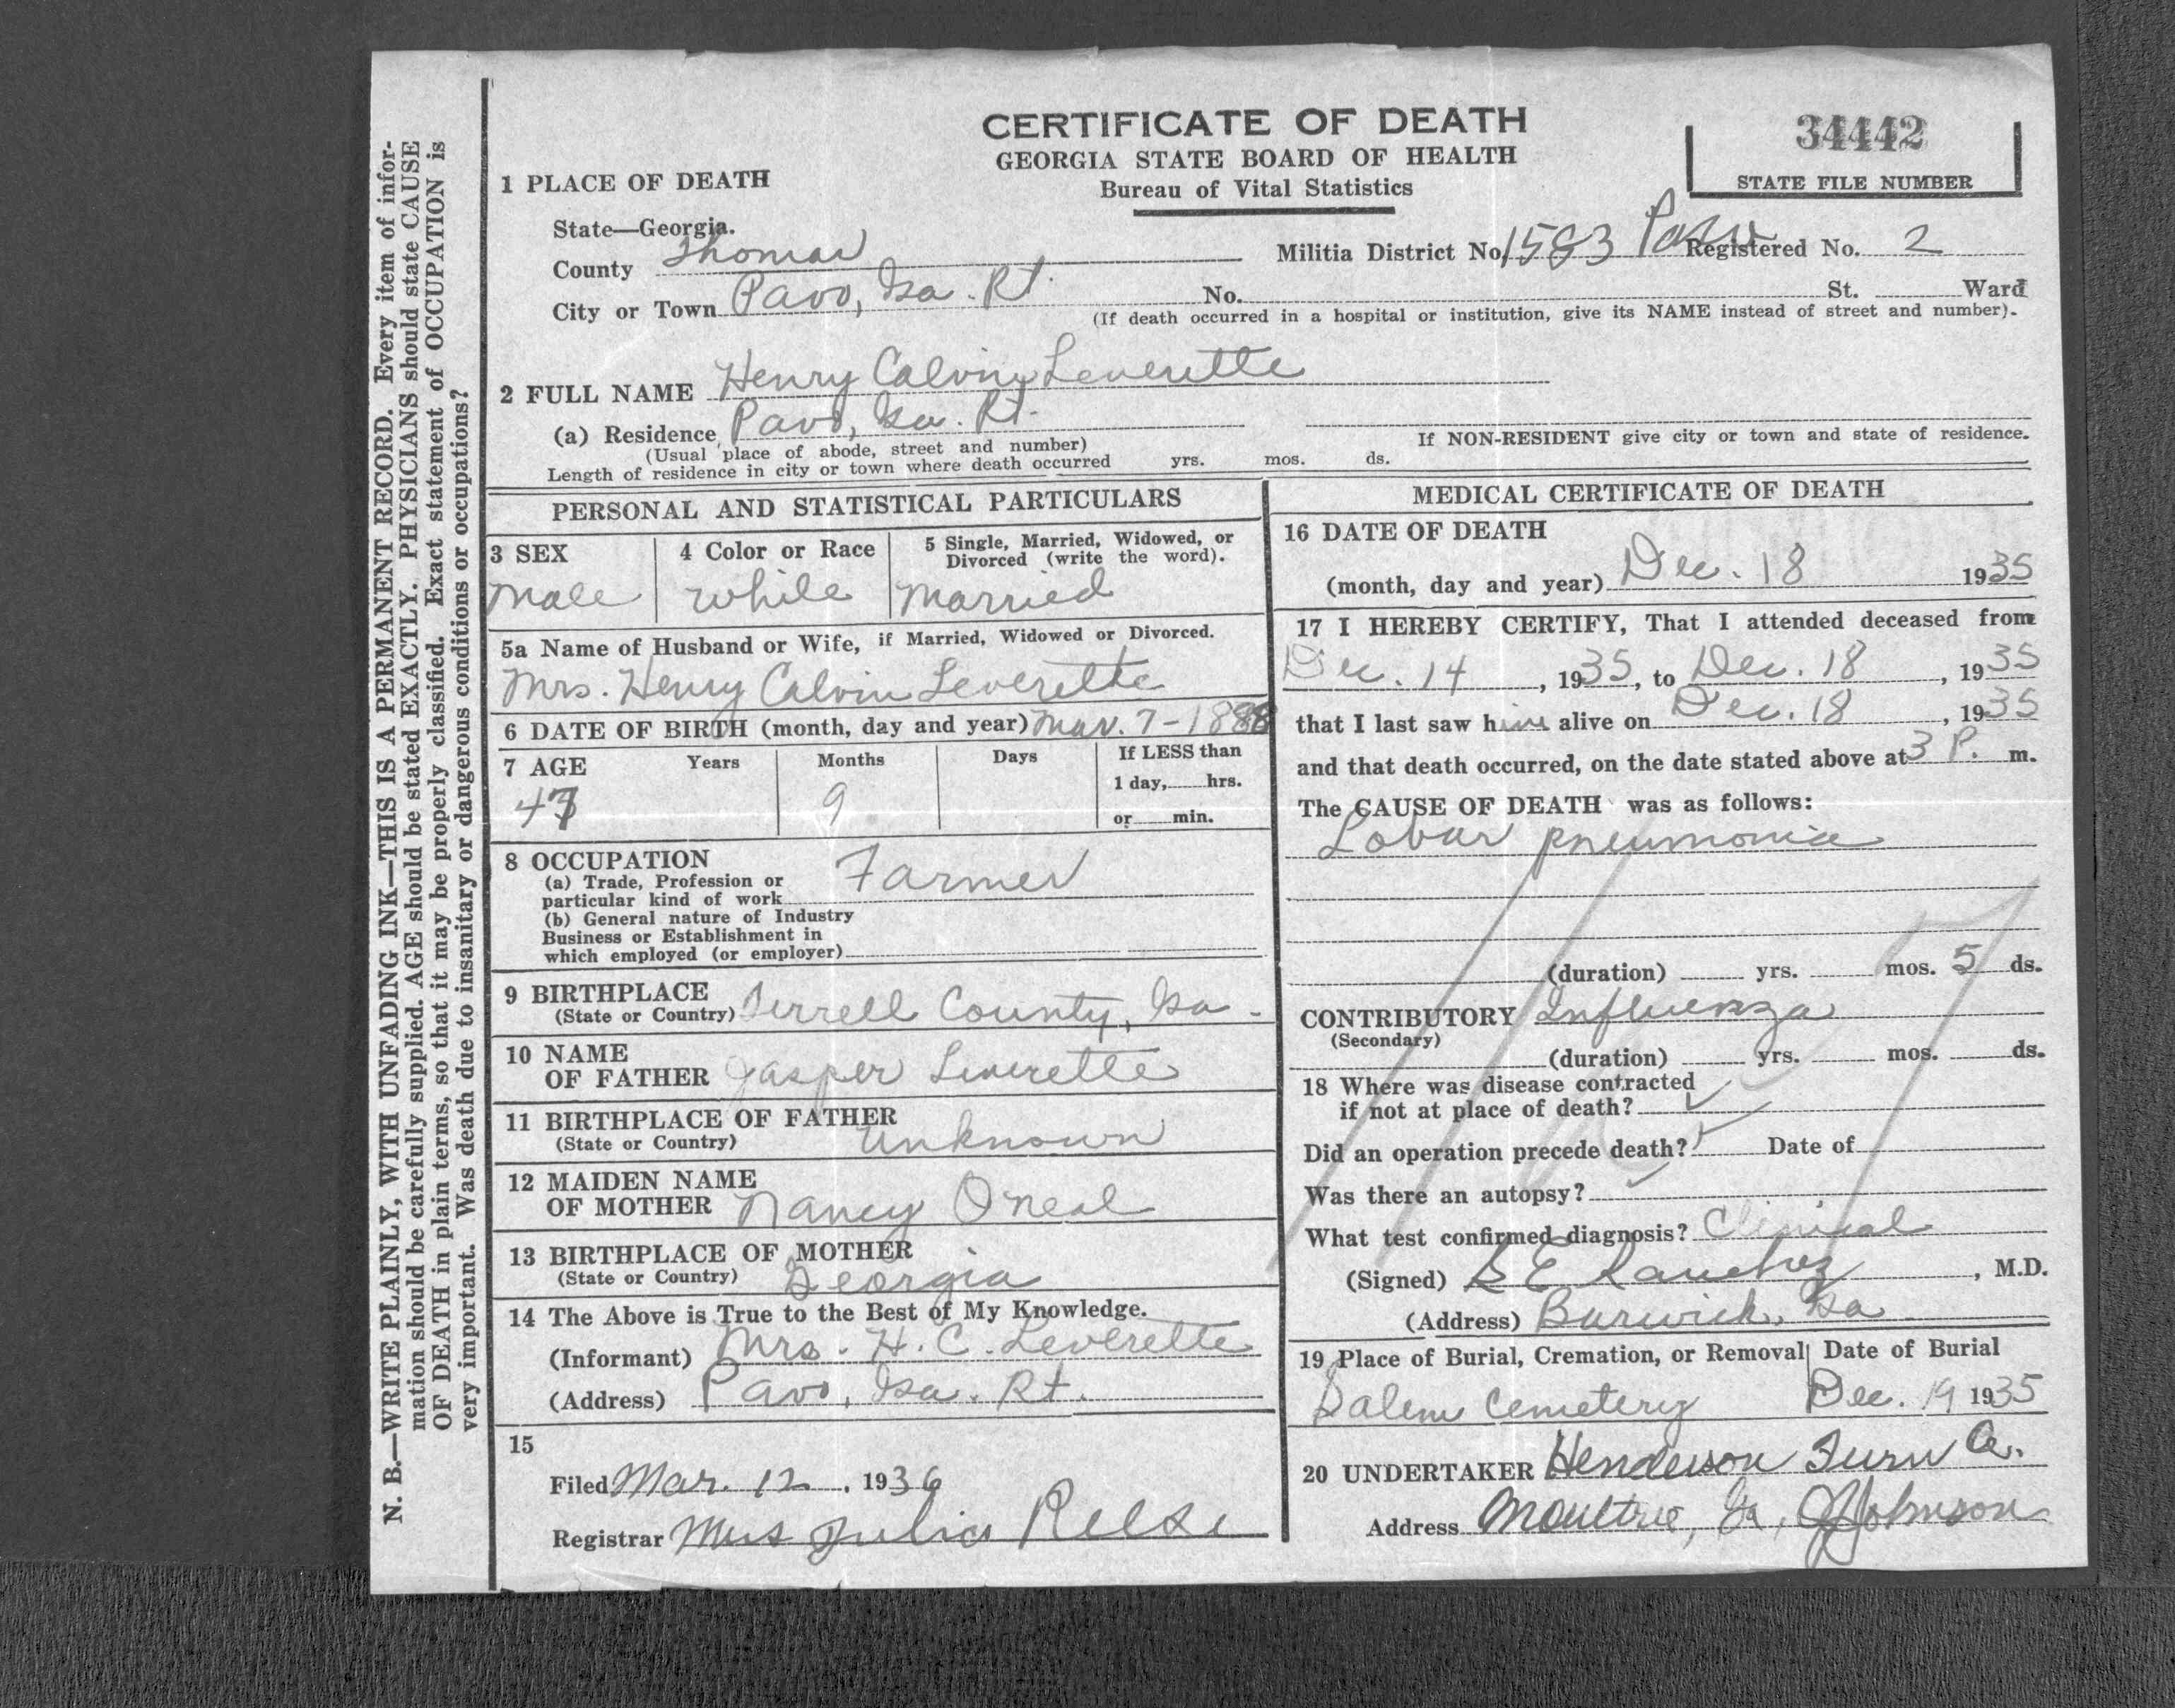 CERTIFICATE OF DEATH
GEORGIA STATE BOARD OF HEALTH
Bureau of Vital Statistics
34442
STATE FILE NUMBER
1 PLACE OF DEATH
State—Georgia.
County Thomas Militia District No. 1583 Pavo Registered No. 2
City or Town Pavo, Ga. Rt. No. St. Ward
(If death occurred in a hospital or institution, give its NAME instead of street and number).
2 FULL NAME Henry Calvin Leverette
(a) Residence Pavo, Ga. Rt.
(Usual place of abode, street and number) If NON-RESIDENT give city or town and state of residence.
Length of residence in city or town where death occurred yrs. mos. ds.
PERSONAL AND STATISTICAL PARTICULARS
3 SEX 4 Color or Race 5 Single, Married, Widowed, or Divorced (write the word).
Male white Married
5a Name of Husband or Wife, if Married, Widowed or Divorced.
Mrs. Henry Calvin Leverette
6 DATE OF BIRTH (month, day and year) Mar. 7 - 1888
7 AGE Years Months Days If LESS than
1 day, hrs.
47 9
or min.
8 OCCUPATION
(a) Trade, Profession or
particular kind of work Farmer
(b) General nature of Industry
Business or Establishment in
which employed (or employer)
9 BIRTHPLACE
(State or Country) Terrell County, Ga.
10 NAME
OF FATHER Jasper Leverette
11 BIRTHPLACE OF FATHER
(State or Country) Unknown
12 MAIDEN NAME
OF MOTHER Nancy Oneal
13 BIRTHPLACE OF MOTHER
(State or Country) Georgia
14 The Above is True to the Best of My Knowledge.
(Informant) Mrs. H. C. Leverette
(Address) Pavo, Ga. Rt.
15
Filed Mar. 12, 1936
Registrar Mrs Julia Reese
MEDICAL CERTIFICATE OF DEATH
16 DATE OF DEATH
(month, day and year) Dec. 18 1935
17 I HEREBY CERTIFY, That I attended deceased from
Dec. 14, 1935, to Dec. 18, 1935
that I last saw him alive on Dec. 18, 1935
and that death occurred, on the date stated above at 3 P. m.
The CAUSE OF DEATH was as follows:
Lobar pneumonia
(duration) yrs. mos. 5 ds.
CONTRIBUTORY Influenza
(Secondary)
(duration) yrs. mos. ds.
18 Where was disease contracted
if not at place of death?
Did an operation precede death? Date of
Was there an autopsy?
What test confirmed diagnosis? Clinical
(Signed) S E Sanchez, M.D.
(Address) Barwick, Ga
19 Place of Burial, Cremation, or Removal Date of Burial
Salem Cemetery Dec. 19 1935
20 UNDERTAKER Henderson Furn Co.
Address Moultrie, Ga, Johnson
N. B.—WRITE PLAINLY, WITH UNFADING INK—THIS IS A PERMANENT RECORD. Every item of infor-
mation should be carefully supplied. AGE should be stated EXACTLY. PHYSICIANS should state CAUSE
OF DEATH in plain terms, so that it may be properly classified. Exact statement of OCCUPATION is
very important. Was death due to insanitary or dangerous conditions or occupations?